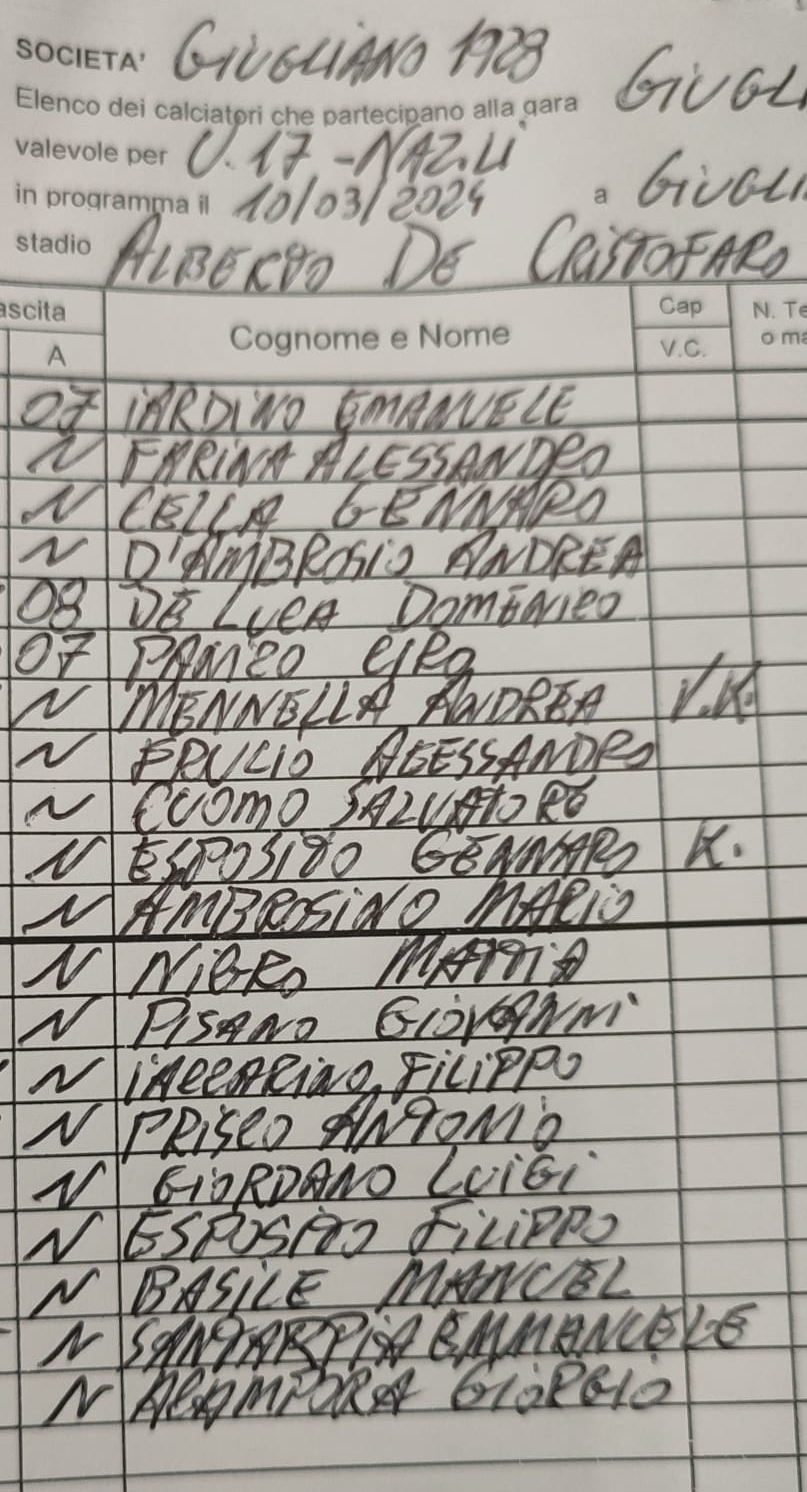 SOCIETA' GIUGLIANO 1928
Elenco dei calciatori che partecipano alla gara GIUGLI
valevole per U.17 - NAZ.LI
in programma il 10/03/2024 a GIUGLI
stadio ALBERTO DE CRISTOFARO
ascita Cognome e Nome Cap N. Te
A V.C. o ma
07 IARDINO EMANUELE
N FARINA ALESSANDRO
N CELLA GENNARO
N D'AMBROSIO ANDREA
08 DE LUCA DOMENICO
07 CIRO
N MENNELLA ANDREA V.K.
N ALESSANDRO
N CUOMO SALVATORE
N ESPOSITO GENNARO K.
N AMBROSINO MARIO
N NIGRO MATTIA
N PISANO GIOVANNI
N IACCARINO FILIPPO
N PRISCO ANTONIO
N GIORDANO LUIGI
N ESPOSITO FILIPPO
N BASILE MANUEL
N SANTARPIA EMMANUELE
N ACAMPORA GIORGIO